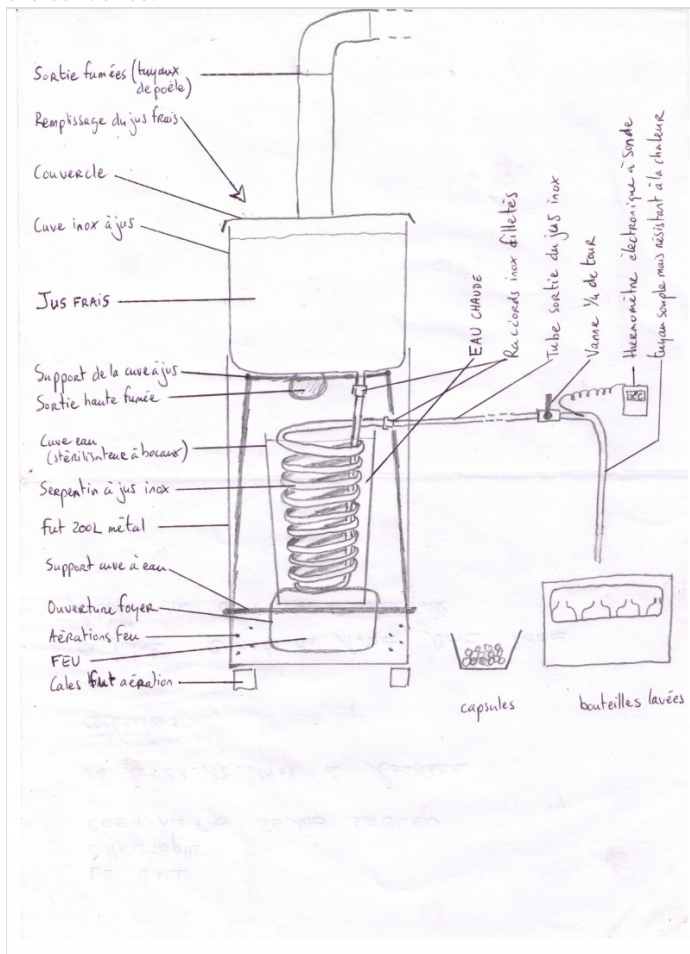 Sortie fumées (tuyaux
de poêle)
Remplissage du jus frais
Couvercle
Cuve inox à jus
JUS FRAIS
Support de la cuve à jus
Sortie haute fumée
Cuve eau
(stérilisateur à bocaux)
Serpentin à jus inox
Fut 200L métal
Support cuve à eau
Ouverture foyer
Aérations feu
FEU
Cales fut aération
EAU CHAUDE
Raccords inox filletés
Tube sortie du jus inox
Vanne 1/4 de tour
thermomètre électronique à sonde
tuyau souple mais résistant à la chaleur
capsules
bouteilles lavées